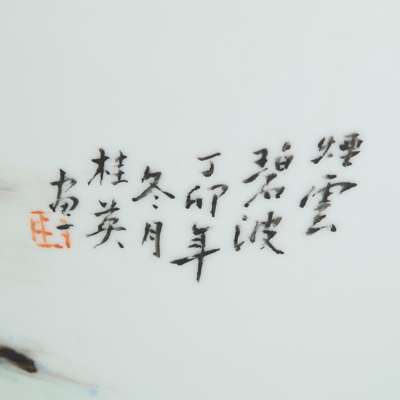 煙雲
碧波
丁卯年
冬月
桂英
画